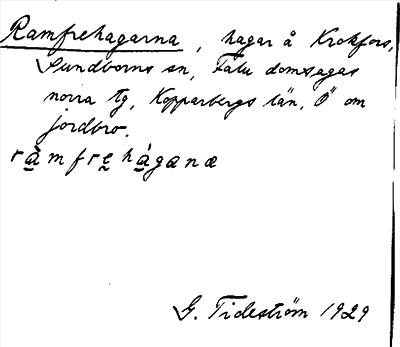 Ramfrehagarna, hagar å Krokfors,
Sundborns sn, Falu domsagas
norra tg, Kopparbergs län, Ö om
jordbro.
ràmfrehágænæ
G. Tideström 1929